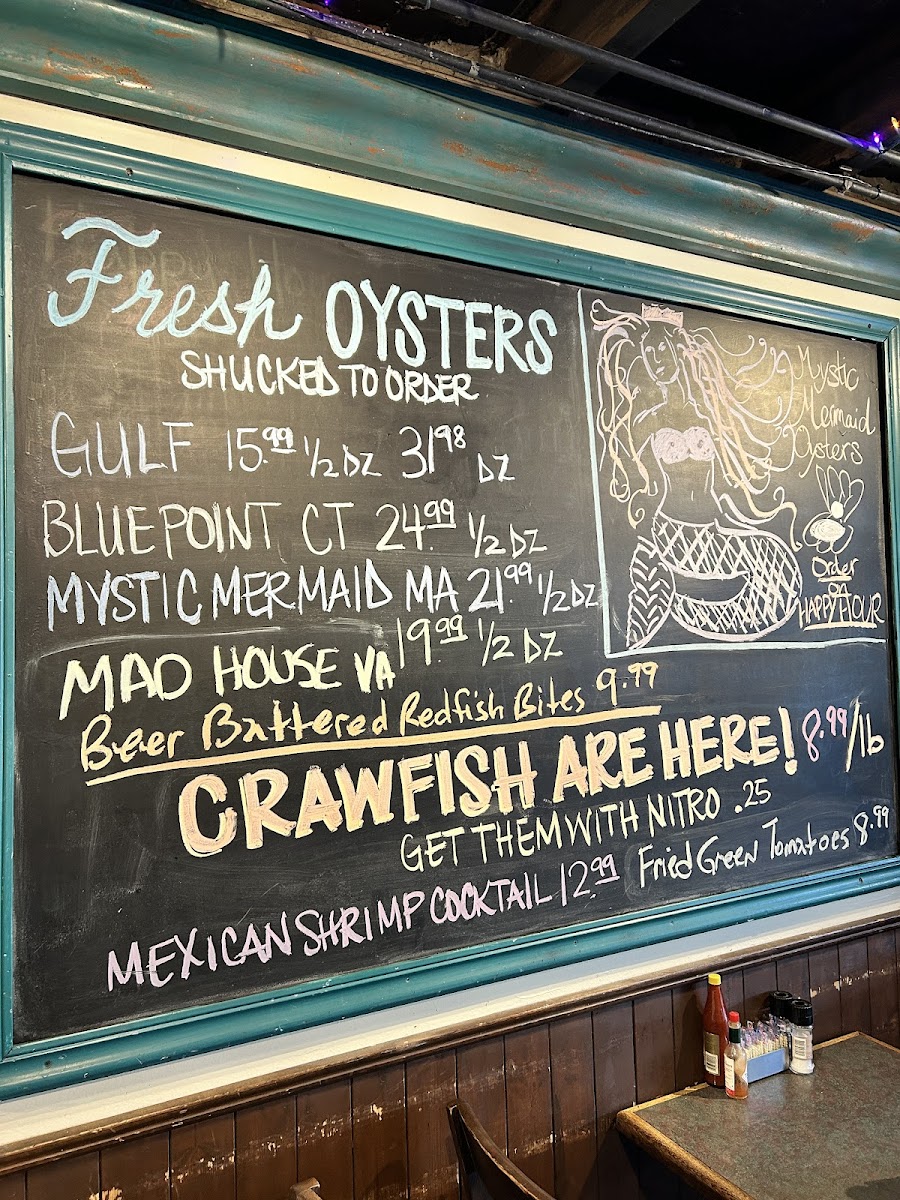 Fresh OYSTERS
SHUCKED TO ORDER
GULF 15.99 1/2 DZ 31.98 DZ
BLUEPOINT CT 24.99 1/2 DZ
MYSTIC MERMAID MA 21.99 1/2 DZ
MAD HOUSE VA 19.99 1/2 DZ
Beer Battered Redfish Bites 9.99
CRAWFISH ARE HERE! 8.99/lb
GET THEM WITH NITRO .25
Fried Green Tomatoes 8.99
MEXICAN SHRIMP COCKTAIL 12.99
Mystic
Mermaid
Oysters
Order
on
HAPPY HOUR